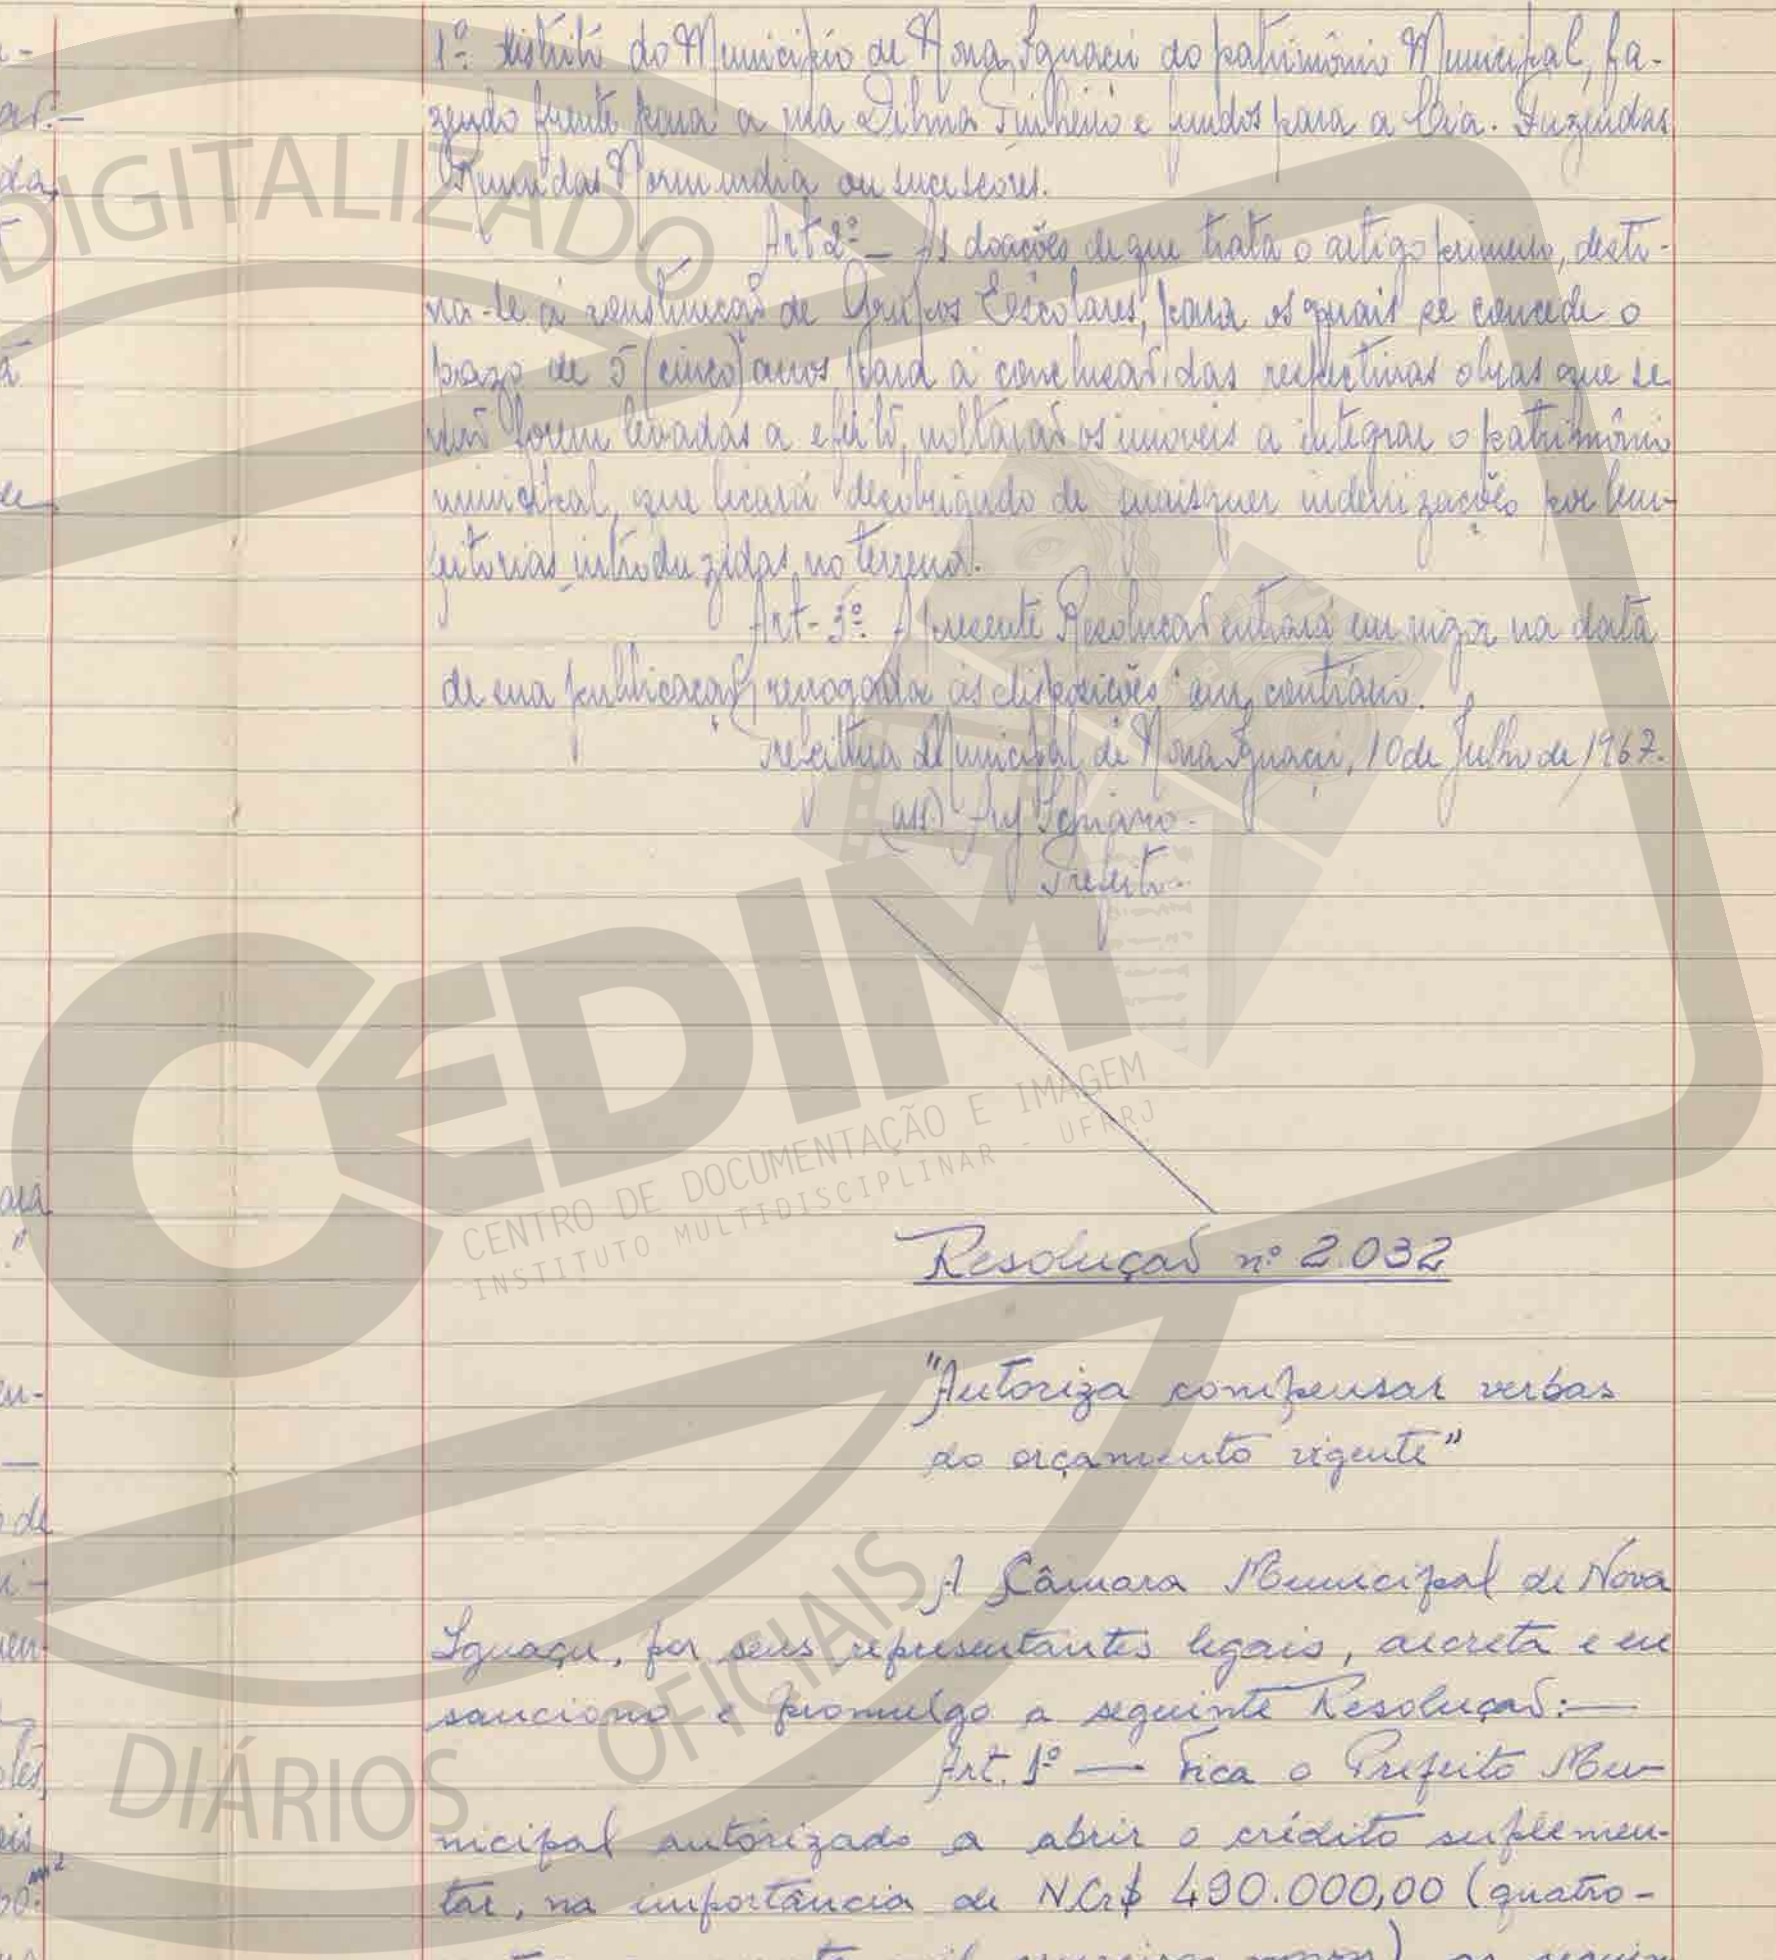 1º distrito do Município de Nova Iguaçu do patrimônio Municipal, fa-
zendo frente para a rua Dilma Pinheiro e fundos para a Cia. Fazendas
Reunidas Normandia ou sucessores.
Art 2º — As doações de que trata o artigo primeiro, desti-
na-se à construção de Grupos Escolares, para os quais se concede o
prazo de 5 (cinco) anos para a conclusão das respectivas obras que se
não forem levadas a efeito, voltarão os imoveis a integrar o patrimônio
municipal, que ficará desobrigado de quaisquer indenizações por ben-
feitorias introduzidas no terreno.
Art - 3º A presente Resolução entrará em vigor na data
de sua publicação, revogadas as disposições em contrário.
Prefeitura Municipal de Nova Iguaçu, 10 de Julho de 1967.
(ass)
Prefeito
Resolução nº 2.032
"Autoriza compensar verbas
do orçamento vigente"
A Câmara Municipal de Nova
Iguaçu, por seus representantes legais, decreta e eu
sanciono e promulgo a seguinte Resolução:—
Art. 1º — Fica o Prefeito Mu-
nicipal autorizado a abrir o crédito suplemen-
tar, na importância de NCr$ 490.000,00 (quatro-
DIGITALIZADO
CEDIM
CENTRO DE DOCUMENTAÇÃO E IMAGEM
INSTITUTO MULTIDISCIPLINAR - UFRRJ
DIÁRIOS OFICIAIS